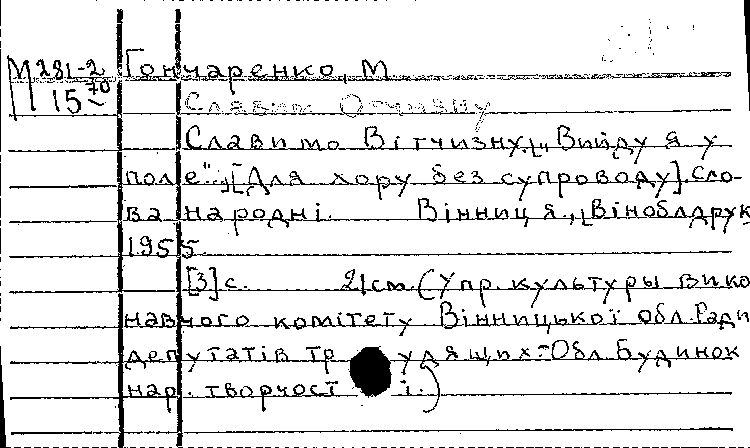 М 281-2 Гончаренко, М
15 70
Славим Отчизну
Славимо Вітчизну. [„Вийду я у
поле".] [Для хору без супроводу]. Сло-
ва народні. Вінниця., [Вінобл­друк
1955.
[3] с. 21 см. (Упр. культуры вико
навчого комітету Вінницької обл. Ради
депутатів трудящих-Обл. Будинок
нар. творчості.)